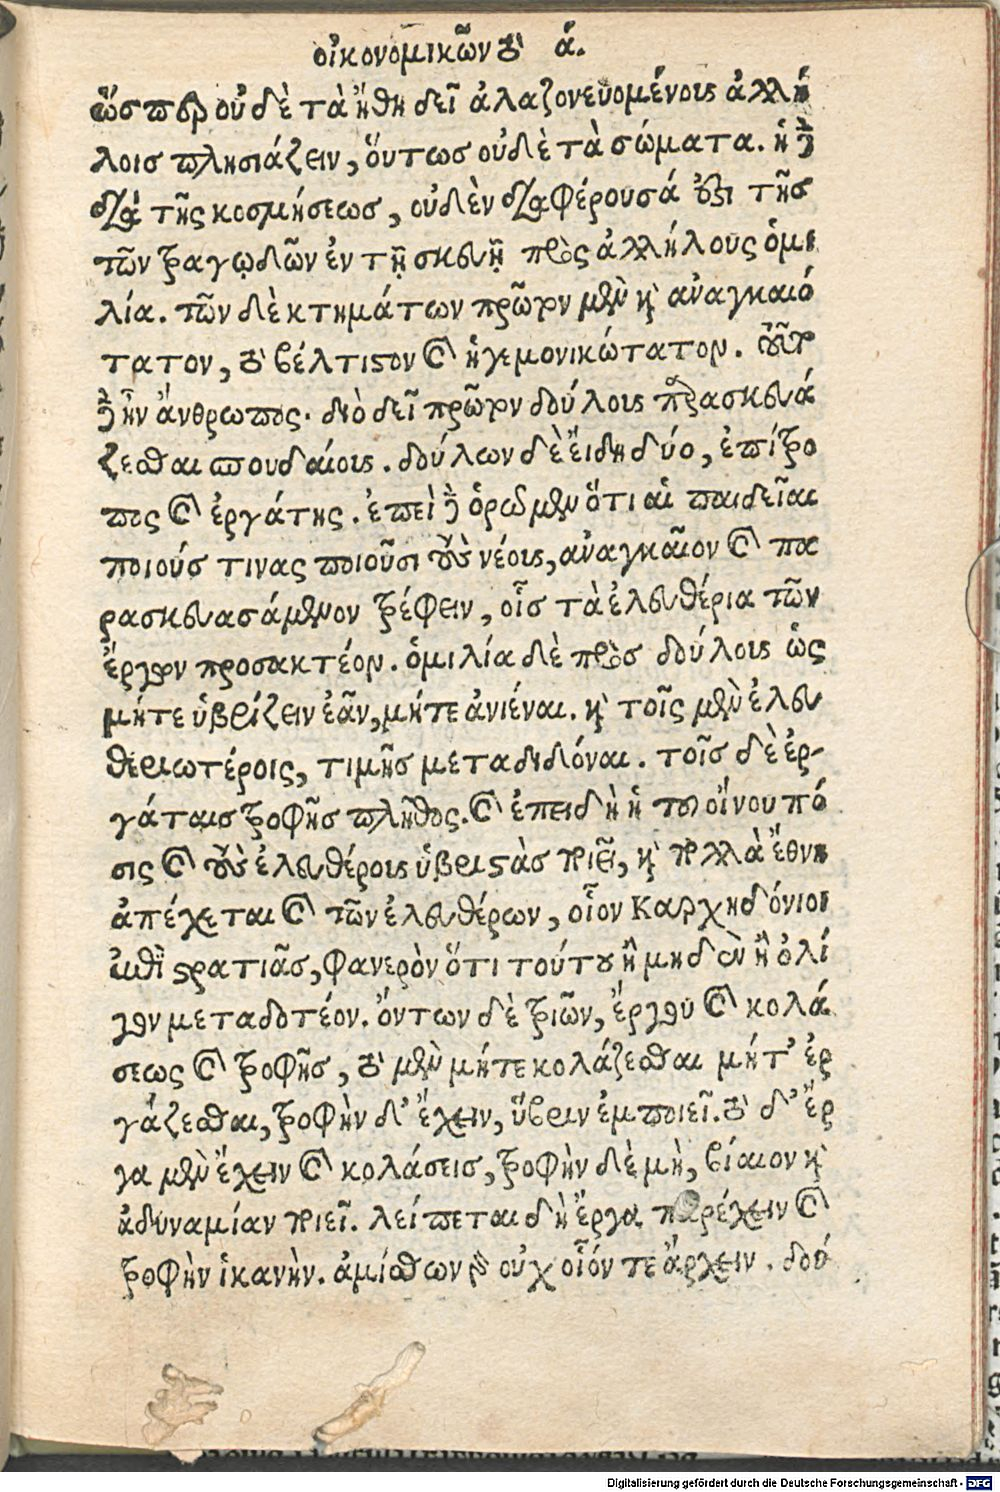 οἰκονομικῶν τὸ ά.
ὥσπερ οὐδὲ τὰ ἤθη δεῖ ἀλαζονευομένους ἀλλή
λοις πλησιάζειν, ὅυτως οὐδὲ τὰ σώματα. ἡ δὲ
διὰ τῆς κοσμήσεως, οὐδὲν διαφέρουσά ἐστι τῆς
τῶν τραγῳδῶν ἐν τῇ σκευῇ πρὸς ἀλλήλους ὁμι
λία. τῶν δὲ κτημάτων πρῶτον μὲν καὶ ἀναγκαιό
τατον, τὸ βέλτιστον καὶ ἡγεμονικώτατον. τοῦτο
δὲ ἦν ἄνθρωπος. διὸ δεῖ πρῶτον δούλους παρασκευά
ζεσθαι σπουδαίους. δούλων δὲ ἔιδη δύο, ἐπίτρο
πος καὶ ἐργάτης. ἐπεὶ δὲ ὁρῶμεν ὅτι αἱ παιδεῖαι
ποιούς τινας ποιοῦσι τοὺς νέους, ἀναγκαῖον καὶ πα
ρασκευασάμενον τρέφειν, οἷς τὰ ἐλευθέρια τῶν
ἔργων προσακτέον. ὁμιλία δὲ πρὸς δούλους ὡς
μήτε ὑβρίζειν ἐᾶν, μήτε ἀνιέναι. καὶ τοῖς μὲν ἐλευ
θεριωτέροις, τιμῆς μεταδιδόναι. τοῖς δὲ ἐρ-
γάταις τροφῆς πλῆθος. καὶ ἐπειδὴ ἡ του οἴνου πό
σις καὶ τοὺς ἐλευθέρους ὑβριστὰς ποιεῖ, καὶ πολλὰ ἔθνη
ἀπέχεται καὶ τῶν ἐλευθέρων, οἷον Καρχηδόνιοι
ἐπὶ στρατιᾶς, φανερὸν ὅτι τούτου ἢ μηδὲν ἢ ὀλί
γον μεταδοτέον. ὄντων δὲ τριῶν, ἔργου καὶ κολά
σεως καὶ τροφῆς, τὸ μὲν μήτε κολάζεσθαι μήτ' ἐρ
γάζεσθαι, τροφὴν δ' ἔχειν, ὕβριν ἐμποιεῖ. τὸ δ' ἔρ
γα μὲν ἔχειν καὶ κολάσεις, τροφὴν δὲ μὴ, βίαιον καὶ
ἀδυναμίαν ποιεῖ. λείπεται δὴ ἔργα παρέχειν καὶ
τροφὴν ἱκανὴν. ἀμίσθων γὰρ οὐχ οἷόν τε ἄρχειν. δού
Digitalisierung gefördert durch die Deutsche Forschungsgemeinschaft - DFG